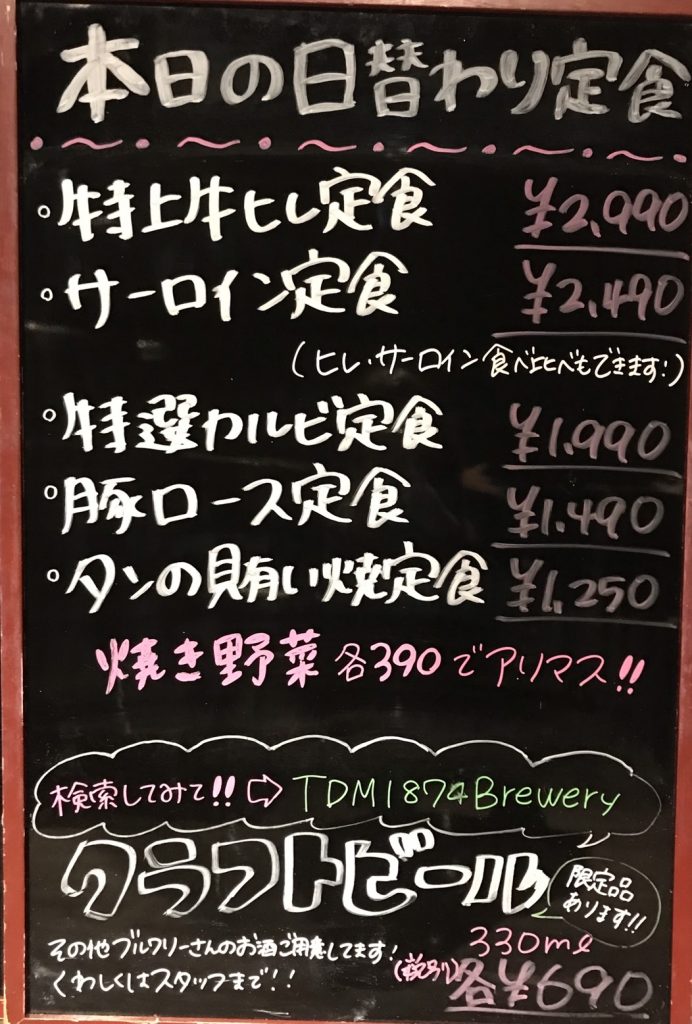 本日の日替わり定食
。特上牛ヒレ定食 ¥2,990
。サーロイン定食 ¥2,490
(ヒレ・サーロイン食べ比べもできます!)
。特選カルビ定食 ¥1.990
。豚ロース定食 ¥1.490
。タンの賄い焼定食 ¥1,250
焼き野菜 各390でアリマス!!
検索してみて!! ⇨ TDM1874Brewery
クラフトビール
限定品
あります!!
その他ブルワリーさんのお酒ご用意してます!
330ml
くわしくはスタッフまで!!
(税別) 各¥690